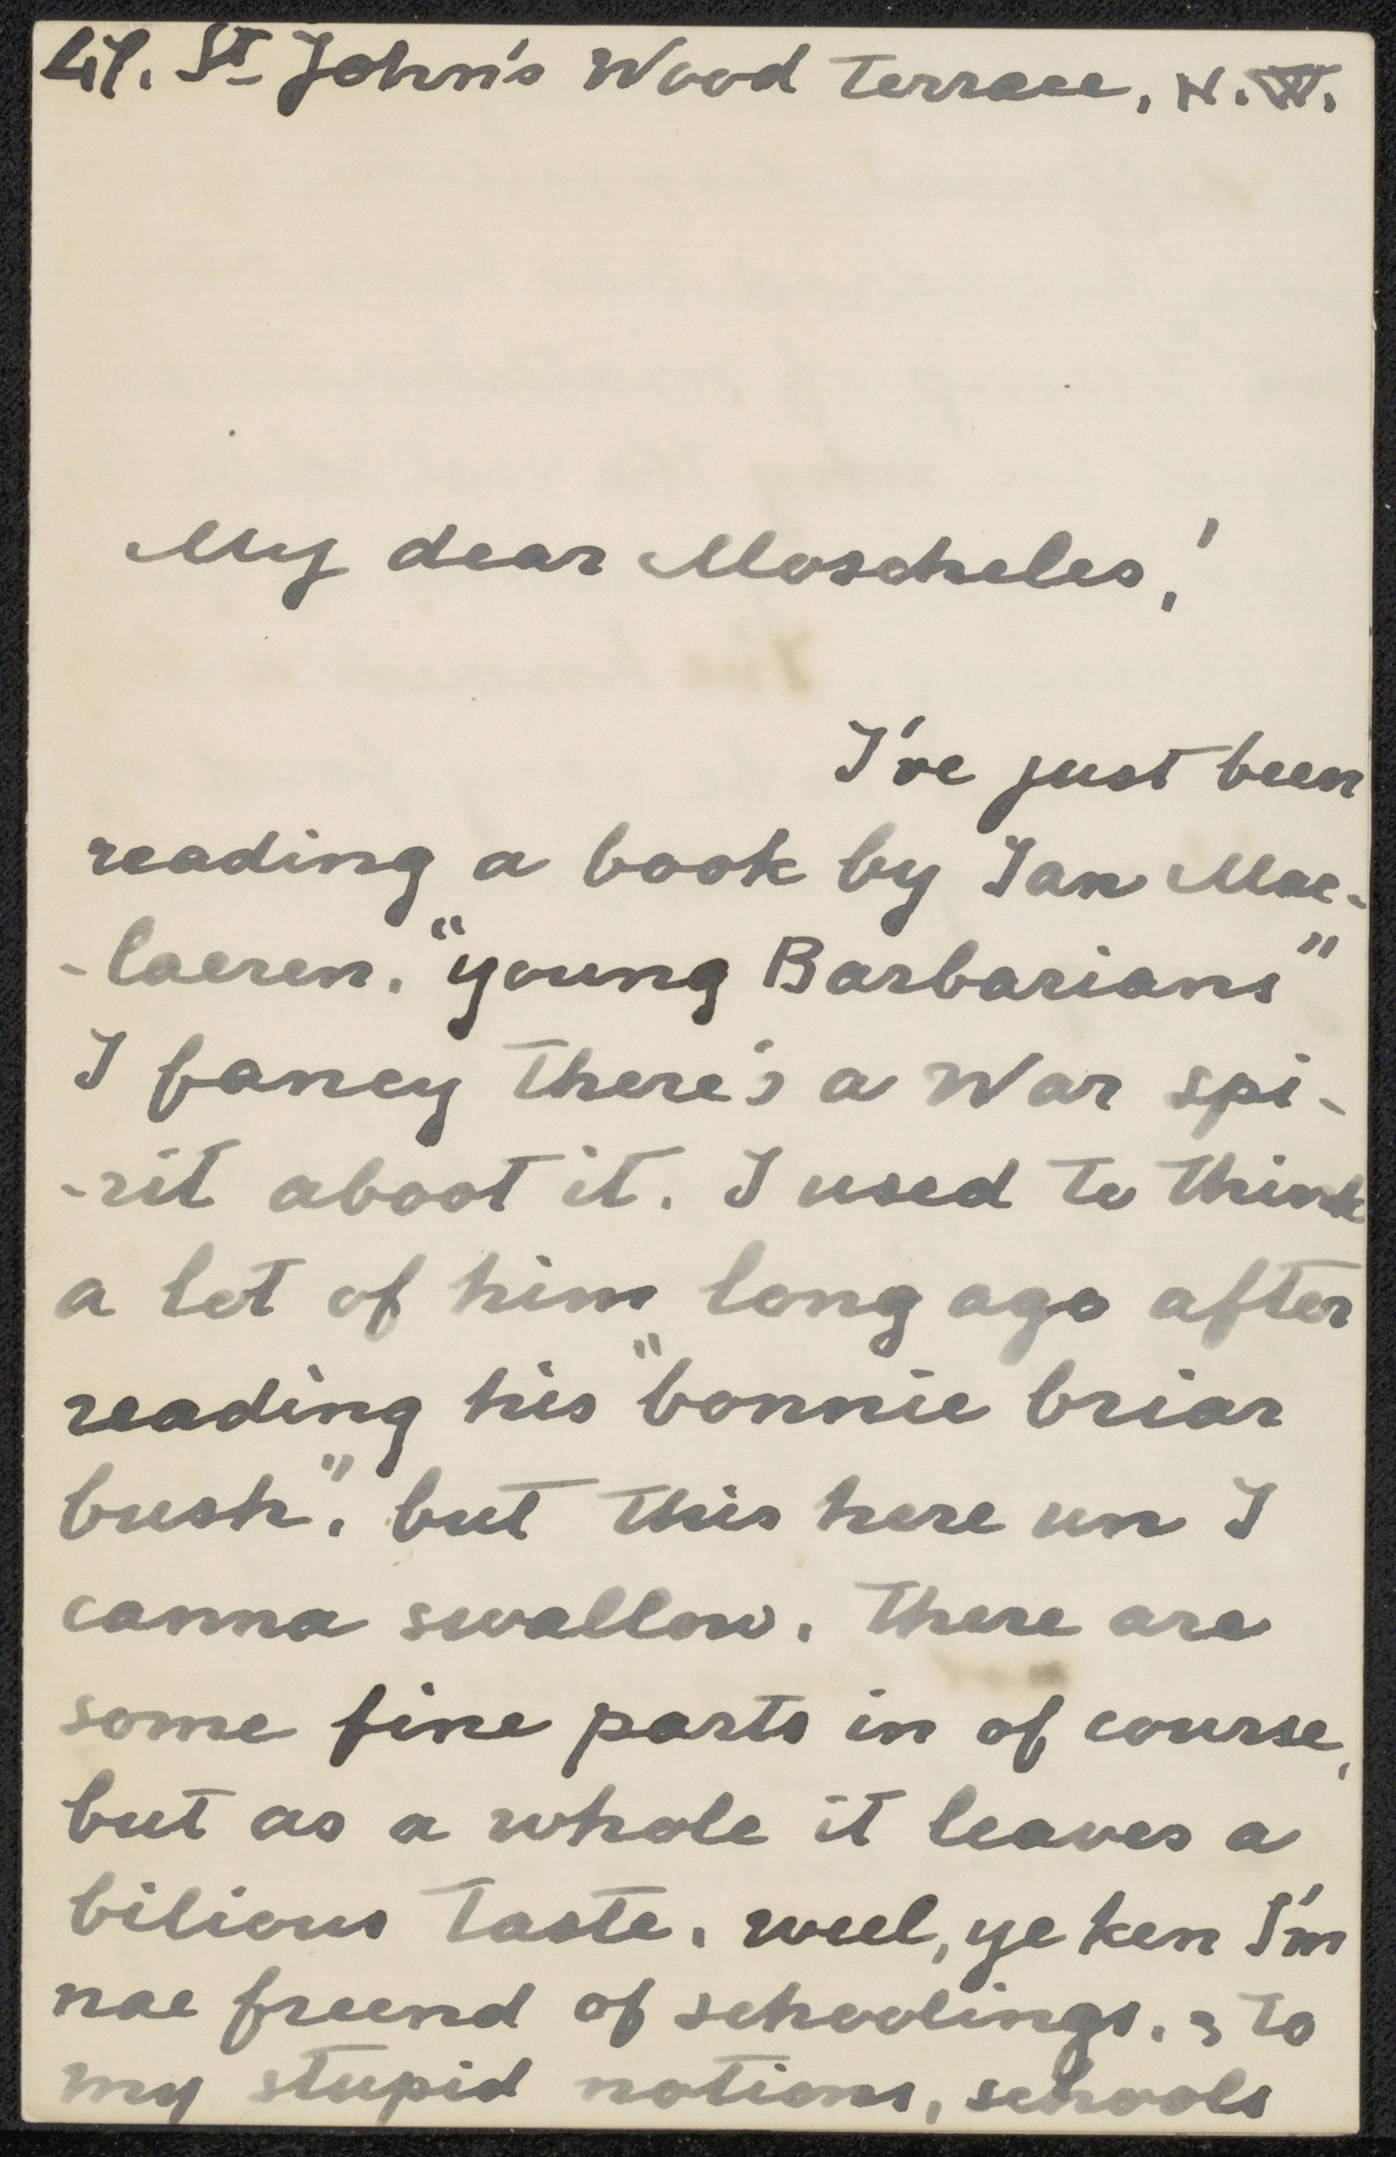 47. St John's Wood Terrace, N.W.
My dear Moscheles,!
I've just been
reading a book by Ian Mac-
-laeren. "young Barbarians"
I fancy there's a War spi-
-rit aboot it. I used to think
a lot of him long ago after
reading his "bonnie briar
bush". but this here un I
canna swallow. There are
some fine parts in of course,
but as a whole it leaves a
bilious taste. weel, ye ken I'm
nae freend of schoolings. & to
my stupid notions, schools